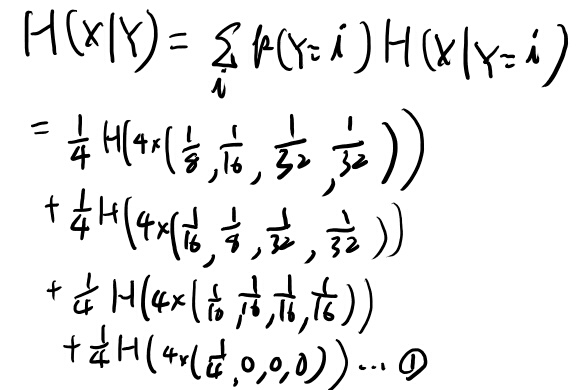 H(X|Y) = Σ_i p(Y=i) H(X|Y=i)
= 1/4 H(4×(1/8, 1/16, 1/32, 1/32))
+ 1/4 H(4×(1/16, 1/8, 1/32, 1/32))
+ 1/4 H(4×(1/16, 1/16, 1/16, 1/16))
+ 1/4 H(4×(1/4, 0, 0, 0)) ... ①